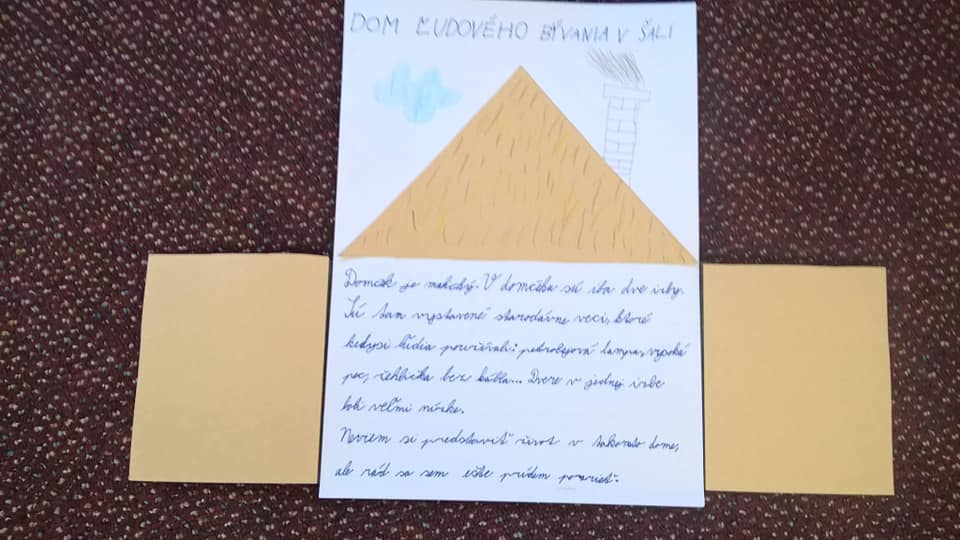 DOM ĽUDOVÉHO BÝVANIA V ŠALI
Domček je maličký. V domčeku sú iba dve izby.
Sú tam vystavené starodávne veci, ktoré
kedysi ľúdia používali: pedrolejová lampa, vysoká
pec, žehlička bez kábla... Dvere v jednej izbe
boli veľmi nízke.
Neviem si predstaviť život v takomto dome,
ale rád sa sem ešte prídem pozrieť.